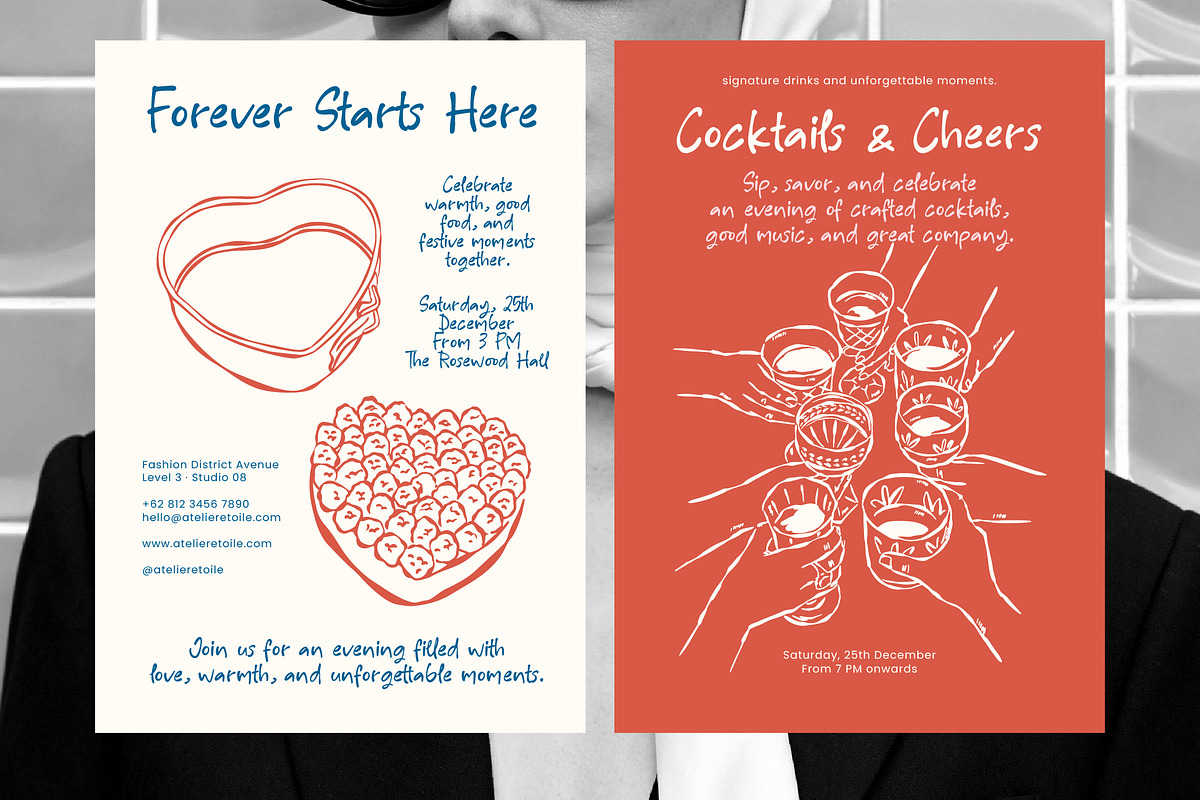 Forever Starts Here
Celebrate
warmth, good
food, and
festive moments
together.
Saturday, 25th
December
From 3 PM
The Rosewood Hall
Fashion District Avenue
Level 3 · Studio 08
+62 812 3456 7890
hello@atelieretoile.com
www.atelieretoile.com
@atelieretoile
Join us for an evening filled with
love, warmth, and unforgettable moments.
signature drinks and unforgettable moments.
Cocktails & Cheers
Sip, savor, and celebrate
an evening of crafted cocktails,
good music, and great company.
Saturday, 25th December
From 7 PM onwards